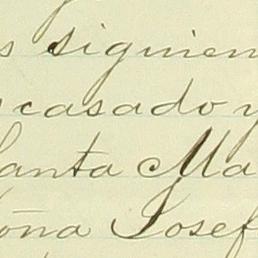 s siguien
casado y
Santa Ma
oña Josef